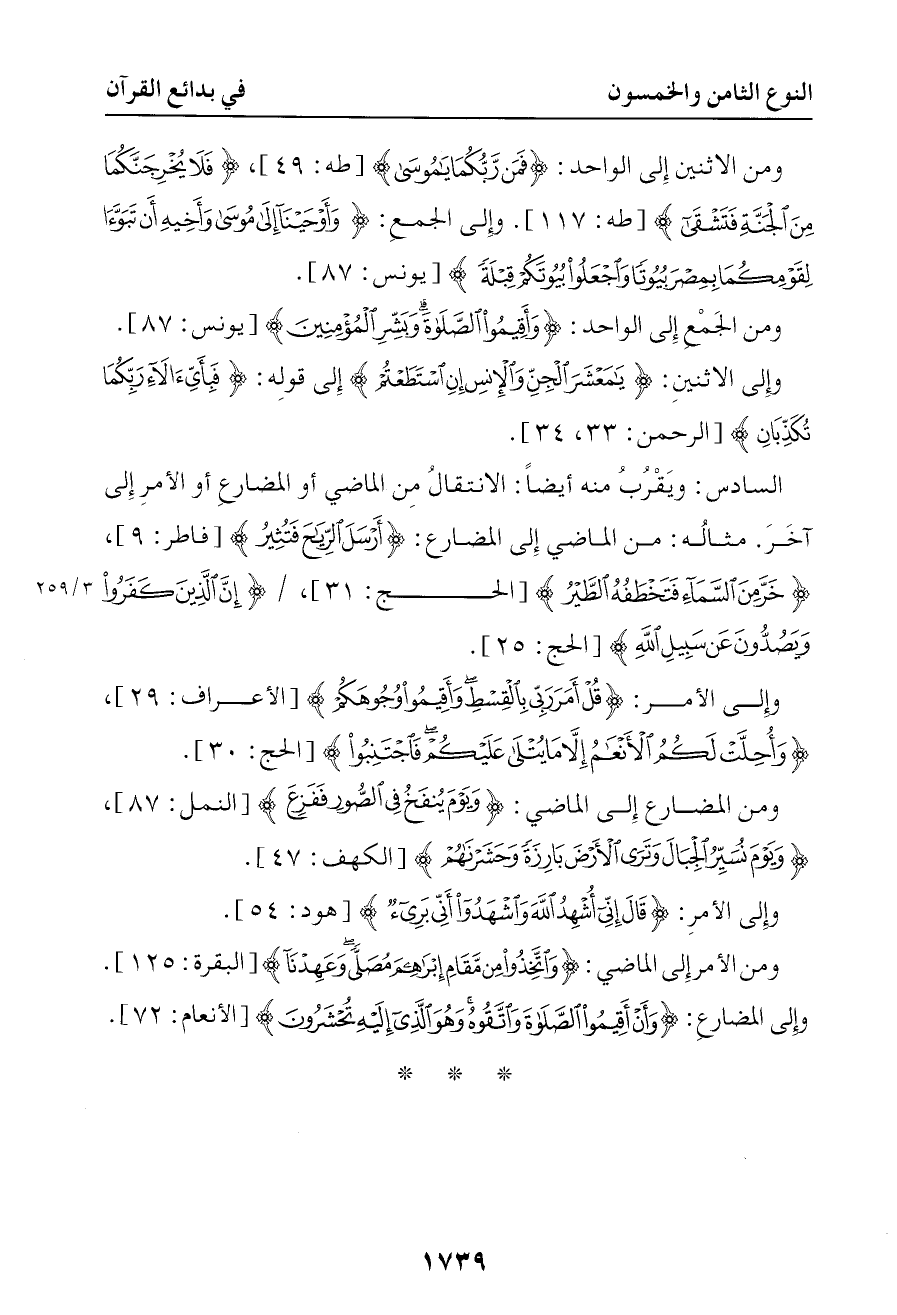 النوع الثامن والخمسون في بدائع القرآن
ومن الاثنين إلى الواحد: ﴿فَمَن رَّبُّكُمَا يَٰمُوسَىٰ﴾ [طه: ٤٩]، ﴿فَلَا يُخْرِجَنَّكُمَا
مِنَ ٱلْجَنَّةِ فَتَشْقَىٰٓ﴾ [طه: ١١٧]. وإلى الجمع: ﴿وَأَوْحَيْنَآ إِلَىٰ مُوسَىٰ وَأَخِيهِ أَن تَبَوَّءَا
لِقَوْمِكُمَا بِمِصْرَ بُيُوتًا وَٱجْعَلُوا۟ بُيُوتَكُمْ قِبْلَةً﴾ [يونس: ٨٧].
ومن الجَمْعِ إلى الواحد: ﴿وَأَقِيمُوا۟ ٱلصَّلَوٰةَۗ وَبَشِّرِ ٱلْمُؤْمِنِينَ﴾ [يونس: ٨٧].
وإلى الاثنينِ: ﴿يَٰمَعْشَرَ ٱلْجِنِّ وَٱلْإِنسِ إِنِ ٱسْتَطَعْتُمْ﴾ إلى قوله: ﴿فَبِأَىِّ ءَالَآءِ رَبِّكُمَا
تُكَذِّبَانِ﴾ [الرحمن: ٣٣، ٣٤].
السادس: ويَقْرُبُ منه أيضاً: الانتقالُ مِن الماضي أو المضارعِ أو الأمرِ إلى
آخَرَ. مثالُه: من الماضي إلى المضارع: ﴿أَرْسَلَ ٱلرِّيَٰحَ فَتُثِيرُ﴾ [فاطر: ٩]،
﴿خَرَّ مِنَ ٱلسَّمَآءِ فَتَخْطَفُهُ ٱلطَّيْرُ﴾ [الحـج: ٣١]، / ﴿إِنَّ ٱلَّذِينَ كَفَرُوا۟ ٢٥٩/٣
وَيَصُدُّونَ عَن سَبِيلِ ٱللَّهِ﴾ [الحج: ٢٥].
وإلـى الأمـر: ﴿قُلْ أَمَرَ رَبِّى بِٱلْقِسْطِۖ وَأَقِيمُوا۟ وُجُوهَكُمْ﴾ [الأعراف: ٢٩]،
﴿وَأُحِلَّتْ لَكُمُ ٱلْأَنْعَٰمُ إِلَّا مَا يُتْلَىٰ عَلَيْكُمْۖ فَٱجْتَنِبُوا۟﴾ [الحج: ٣٠].
ومن المضارع إلـى الماضي: ﴿وَيَوْمَ يُنفَخُ فِى ٱلصُّورِ فَفَزِعَ﴾ [النمل: ٨٧]،
﴿وَيَوْمَ نُسَيِّرُ ٱلْجِبَالَ وَتَرَى ٱلْأَرْضَ بَارِزَةً وَحَشَرْنَٰهُمْ﴾ [الكهف: ٤٧].
وإلى الأمر: ﴿قَالَ إِنِّىٓ أُشْهِدُ ٱللَّهَ وَٱشْهَدُوٓا۟ أَنِّى بَرِىٓءٌ﴾ [هود: ٥٤].
ومن الأمر إلى الماضي: ﴿وَٱتَّخِذُوا۟ مِن مَّقَامِ إِبْرَٰهِـۧمَ مُصَلًّىۖ وَعَهِدْنَآ﴾ [البقرة: ١٢٥].
وإلى المضارعِ: ﴿وَأَنْ أَقِيمُوا۟ ٱلصَّلَوٰةَ وَٱتَّقُوهُۚ وَهُوَ ٱلَّذِىٓ إِلَيْهِ تُحْشَرُونَ﴾ [الأنعام: ٧٢].
* * *
١٧٣٩